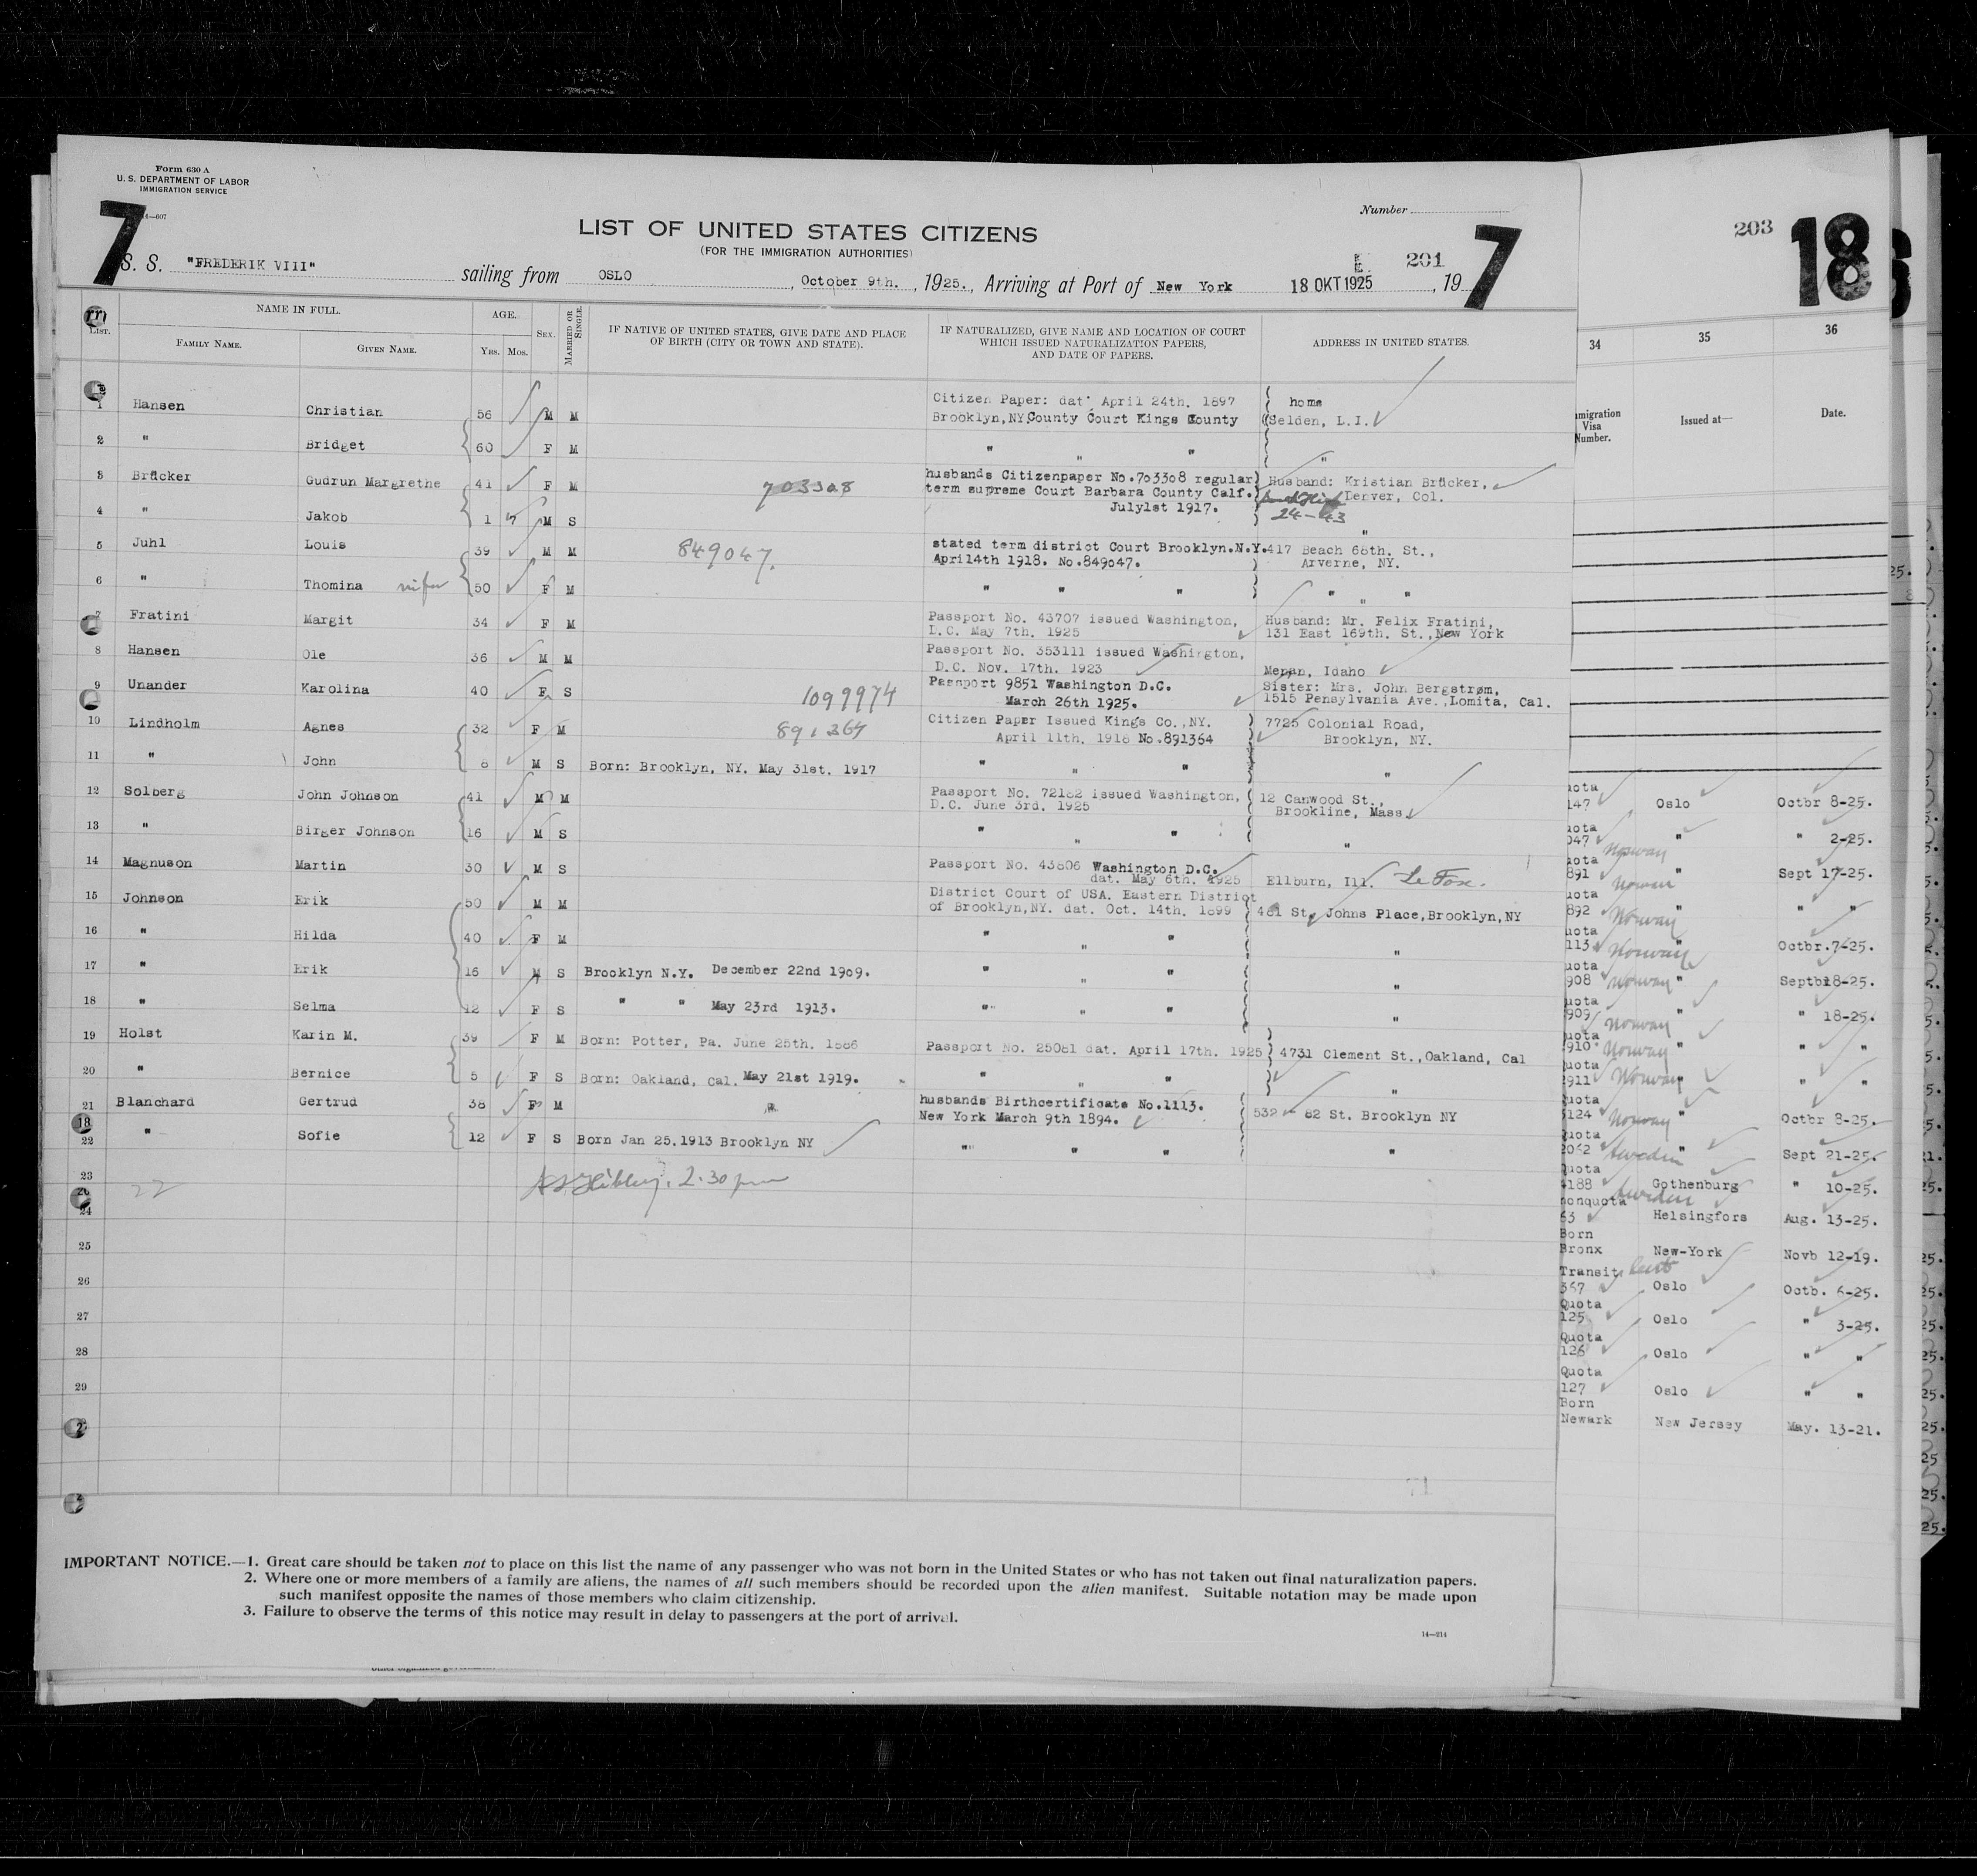 Form 630 A
U. S. DEPARTMENT OF LABOR
IMMIGRATION SERVICE
14—607
7
7
Number
LIST OF UNITED STATES CITIZENS
(FOR THE IMMIGRATION AUTHORITIES)
E. 201
S. S. "FREDERIK VIII" sailing from OSLO, October 9th., 1925., Arriving at Port of New York 18 OKT 1925, 19
LIST.
NAME IN FULL.
FAMILY NAME.
GIVEN NAME.
AGE.
YRS. MOS.
SEX.
MARRIED OR SINGLE.
IF NATIVE OF UNITED STATES, GIVE DATE AND PLACE OF BIRTH (CITY OR TOWN AND STATE).
IF NATURALIZED, GIVE NAME AND LOCATION OF COURT WHICH ISSUED NATURALIZATION PAPERS, AND DATE OF PAPERS.
ADDRESS IN UNITED STATES.
1 Hansen Christian 56 M M Citizen Paper: dat. April 24th. 1897 home
Brooklyn,NY.County Court Kings County Selden, L.I.
2 " Bridget 60 F M " " " "
3 Brücker Gudrun Margrethe 41 F M 703308 husbands Citizenpaper No.703308 regular Husband: Kristian Brücker,
term supreme Court Barbara County Calf. Denver, Col.
July1st 1917. 24-43
4 " Jakob 1 7 M S "
5 Juhl Louis 39 M M 849047. stated term district Court Brooklyn.N.Y. 417 Beach 68th. St.,
April4th 1918. No.849047. Arverne, NY.
6 " Thomina wife 50 F M " " " " " "
7 Fratini Margit 34 F M Passport No. 43707 issued Washington, Husband: Mr. Felix Fratini,
D.C. May 7th. 1925 131 East 169th. St.,New York
8 Hansen Ole 36 M M Passport No. 353111 issued Washington,
D.C. Nov. 17th. 1923 Menan, Idaho
9 Unander Karolina 40 F S 1099974 Passport 9851 Washington D.C. Sister: Mrs. John Bergstrøm,
March 26th 1925. 1515 Pensylvania Ave.,Lomita, Cal.
10 Lindholm Agnes 32 F M 891364 Citizen Paper Issued Kings Co.,NY. 7725 Colonial Road,
April 11th. 1918 No.891364 Brooklyn, NY.
11 " John 8 M S Born: Brooklyn, NY. May 31st. 1917 " " " "
12 Solberg John Johnson 41 M M Passport No. 72182 issued Washington, 12 Canwood St.,
D.C. June 3rd. 1925 Brookline, Mass.
13 " Birger Johnson 16 M S " " " "
14 Magnuson Martin 30 M S Passport No. 43806 Washington D.C.
dat. May 6th. 1925 Ellburn, Ill. La Fox.
15 Johnson Erik 50 M M District Court of USA. Eastern District
of Brooklyn,NY. dat. Oct. 14th. 1899 481 St. Johns Place,Brooklyn,NY
16 " Hilda 40 F M " " " "
17 " Erik 16 M S Brooklyn N.Y. December 22nd 1909. " " " "
18 " Selma 12 F S " " May 23rd 1913. " " " "
19 Holst Karin M. 39 F M Born: Potter, Pa. June 25th. 1886 Passport No. 25081 dat. April 17th. 1925 4731 Clement St.,Oakland, Cal
20 " Bernice 5 F S Born: Oakland, Cal. May 21st 1919. " " " "
21 Blanchard Gertrud 38 F M husbands Birthcertificate No.1113.
New York March 9th 1894. 532 - 82 St. Brooklyn NY
22 " Sofie 12 F S Born Jan 25.1913 Brooklyn NY " " " "
23
22 2:30 pm
24
25
26
27
28
29
71
IMPORTANT NOTICE.—1. Great care should be taken not to place on this list the name of any passenger who was not born in the United States or who has not taken out final naturalization papers.
2. Where one or more members of a family are aliens, the names of all such members should be recorded upon the alien manifest. Suitable notation may be made upon
such manifest opposite the names of those members who claim citizenship.
3. Failure to observe the terms of this notice may result in delay to passengers at the port of arrival.
14—214
203 18
34 35 36
migration Visa Number. Issued at— Date.
uota
147 Oslo Octbr 8-25.
uota
047 Norway " " 2-25.
uota
891 Norway " Sept 17-25.
uota
892 Norway " " "
uota
113 Norway " Octbr.7-25.
uota
908 Norway " Septb18-25.
uota
909 Norway " " 18-25.
uota
910 Norway " " "
uota
911 Norway " " "
uota
124 Norway " Octbr 8-25.
Quota
2062 Sweden " Sept 21-25.
Quota
188 Sweden Gothenburg " 10-25.
nonquota
63 Helsingfors Aug. 13-25.
Born
Bronx New-York Novb 12-19.
Transit
367 Oslo Octb. 6-25.
Quota
125 Oslo " 3-25.
Quota
126 Oslo " "
Quota
127 Oslo " "
Born
Newark New Jersey May. 13-21.